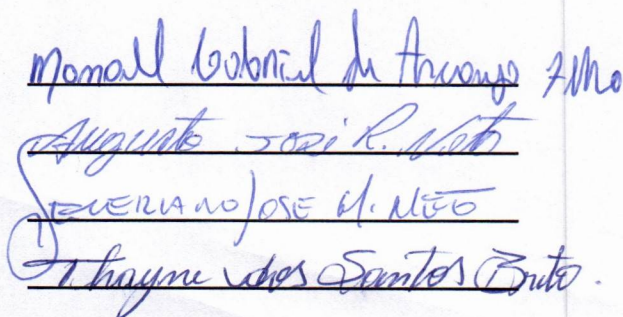 Manoel Gabriel de Arcanjo Filho
Augusto José R. Neto
SEVERIANO JOSE M. NETO
Thayne dos Santos Brito.